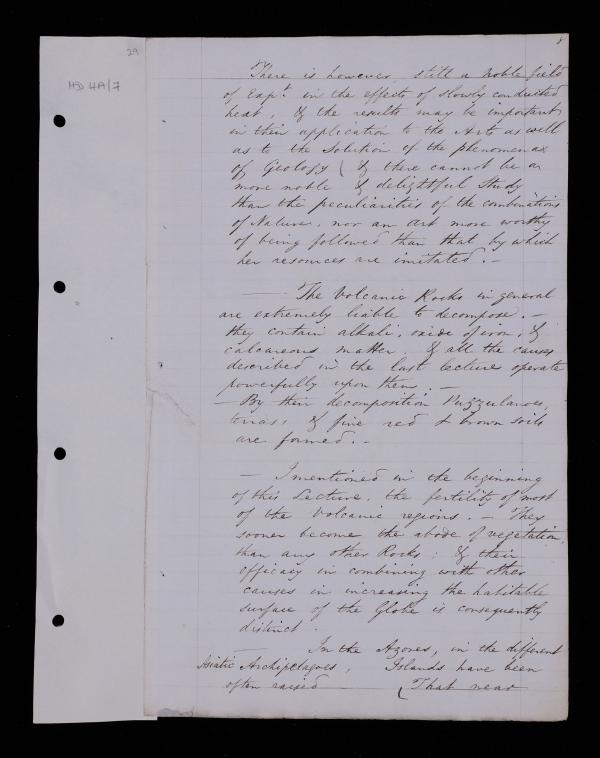 29
HD 4A/7
8
There is however still a noble field
of Expt. in the effects of slowly conducted
heat, & the results may be important
in their application to the Arts as well
as to the Solution of the phenomena
of Geology ( & there cannot be a
more noble & delightful Study
than the peculiarities of the combinations
of Nature, nor an Art more worthy
of being followed than that by which
her resources are imitated. –
— The Volcanic Rocks in general
are extremely liable to decompose. –
they contain alkali, oxide of iron, &
calcareous matter. & all the causes
described in the last lecture operate
powerfully upon them. –
– By their decomposition Puzzulanoes,
terras, & fine red & brown soils
are formed. –
– I mentioned in the beginning
of this Lecture, the fertility of most
of the Volcanic regions. – They
sooner become the abode of vegetation,
than any other Rocks: & their
efficacy in combining with other
causes in increasing the habitable
surface of the Globe is consequently
distinct.
— In the Azores, in the different
Asiatic Archipelagoes, Islands have been
often raised — (That near